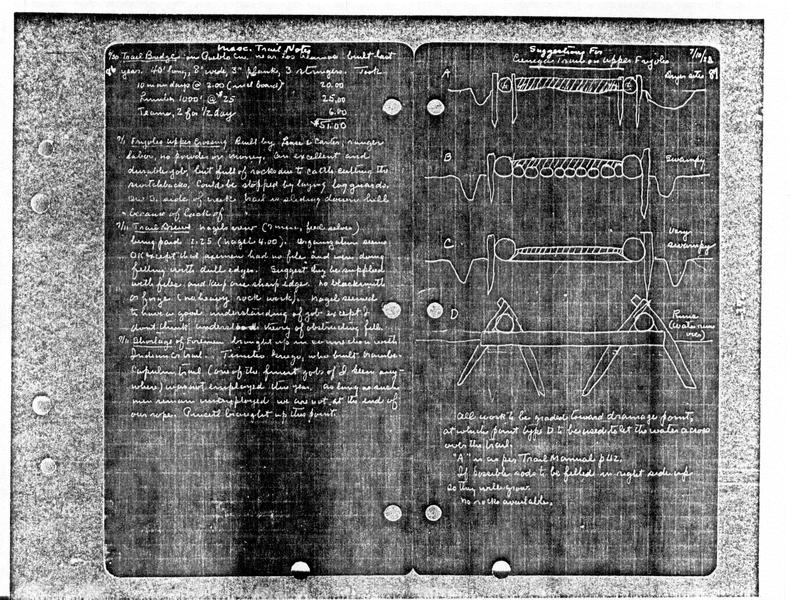 Misc. Trail Notes
Trail Bridge on Pueblo Cn. near Los Alamos built last
year. 40' long, 8' wide 3" planks, 3 stringers. Took
10 man days @ 2.00 (and board) 20.00
1000' @ $25 25.00
Teams, 2 for 1/2 day 6.00
$51.00
Frijoles Upper Crossing Built by & Carter, ranger
labor, no powder or money. An excellent and
durable job, but full of rocks due to cattle cutting the
switchbacks. Could be stopped by laying log guards.
On S. side of creek trail is sliding down hill
because of lack of "
Nagel's crew (7 men, feed selves)
being paid 2.25 (Nagel 4.00). Organization seems
OK except that axemen had no file and were doing
felling with dull edges. Suggest they be supplied
with files and keep one sharp edge. No blacksmith
or forge (no heavy rock work). Nagel seemed
to have a good understanding of job except I
don't think understands theory of obstructing fill.
Shortage of Foremen brought up in connection with
trail. who built
trail (one of the finest jobs I have seen any-
where) was not employed this year. As long as such
men remain unemployed we are not at the end of
our rope. brought up this point.
Suggestions For
Cienega Trail on Upper Frijoles
A
Dryer sites
B
Swampy
C
Very
Swampy
D
Runs
(Water runs
over)
All work to be graded toward drainage point,
at which point type D to be used to let the water across
over the trail.
"A" is as per Trail Manual p42.
If possible sods to be filled in right side up
so they will grow.
No rocks available.